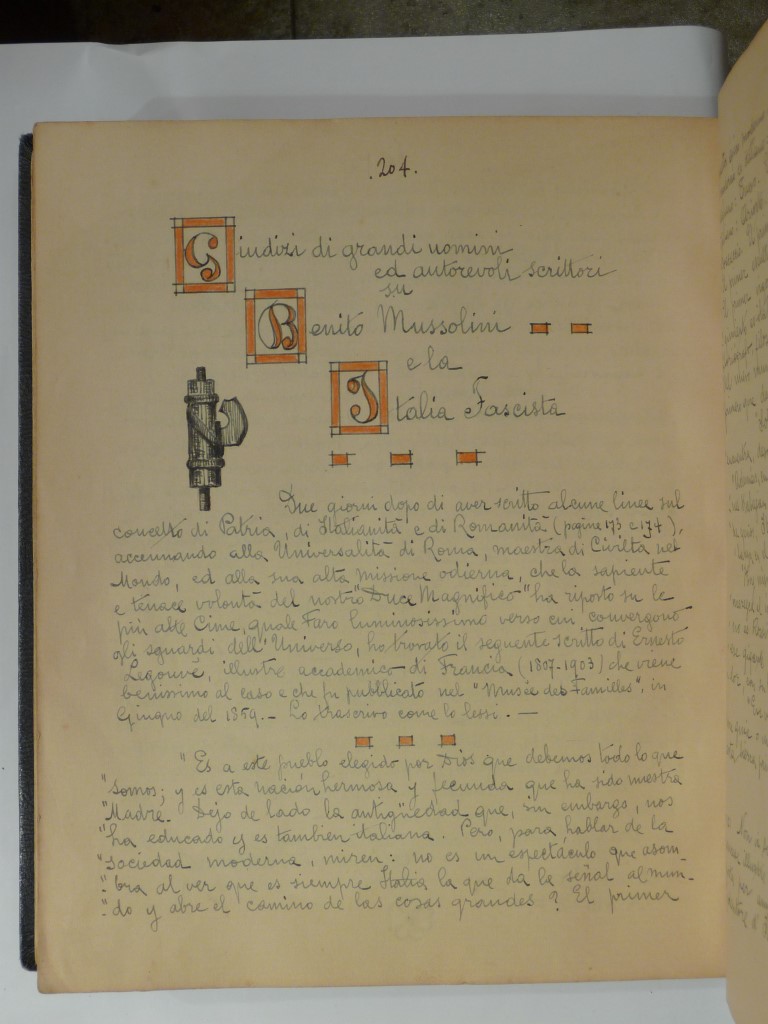 .204.
Giudizi di grandi uomini
ed autorevoli scrittori
su
Benito Mussolini
e la
Italia Fascista
Due giorni dopo di aver scritto alcune linee sul
concetto di Patria, di Italianità e di Romanità (pagine 173 e 174),
accennando alla Universalità di Roma, maestra di Civiltà nel
Mondo, ed alla sua alta missione odierna, che la sapiente
e tenace volontà del nostro "Duce Magnifico" ha riposto su le
più alte Cime, quale Faro luminosissimo verso cui convergono
gli sguardi dell'Universo, ho trovato il seguente scritto di Ernesto
Legouvé, illustre accademico di Francia (1807-1903) che viene
benissimo al caso e che fu pubblicato nel "Musée des Familles", in
Giugno del 1859.- Lo trascrivo come lo lessi. —
"Es a este pueblo elegido por Dios que debemos todo lo que
"somos; y es esta nación hermosa y fecunda que ha sido nuestra
"Madre. Dejo de lado la antigüedad que, sin embargo, nos
"ha educado y es tambien italiana. Pero, para hablar de la
"sociedad moderna, miren: no es un espectáculo que asom-
"bra al ver que es siempre Italia la que da la señal al mun-
"do y abre el camino de las cosas grandes? El primer